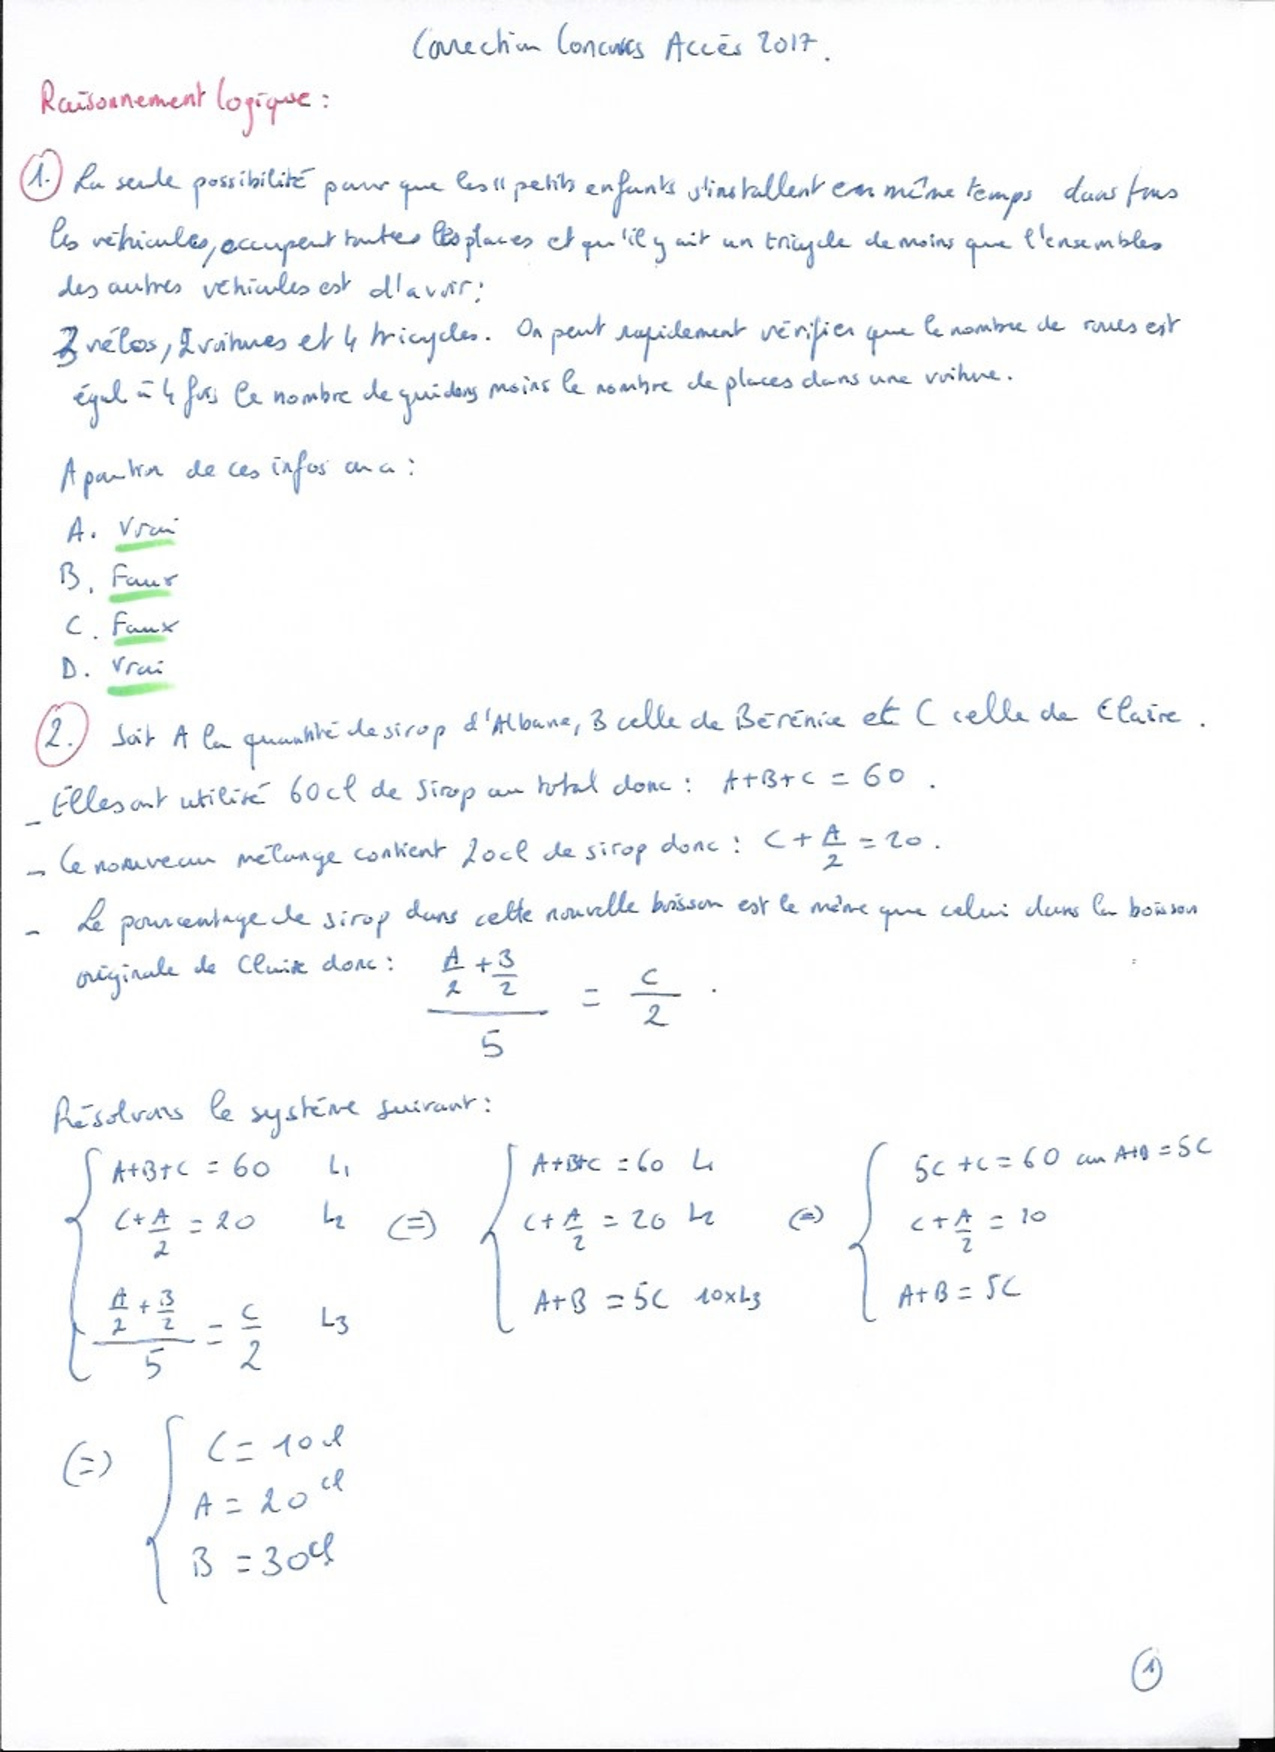 Correction Concours Accès 2017.
Raisonnement logique :
1. La seule possibilité pour que les 11 petits enfants s'installent en même temps dans tous
les véhicules, occupent toutes les places et qu'il y ait un tricycle de moins que l'ensembles
des autres véhicules est d'avoir :
3 vélos, 2 voitures et 4 tricycles. On peut rapidement vérifier que le nombre de roues est
égal à 4 fois le nombre de guidons moins le nombre de places dans une voiture.
A partir de ces infos on a :
A. Vrai
B. Faux
C. Faux
D. Vrai
2. Soit A la quantité de sirop d'Albane, B celle de Bérénice et C celle de Claire.
- Elles ont utilisé 60cl de sirop au total donc : A+B+C = 60.
- Ce nouveau mélange contient 20cl de sirop donc : C + A/2 = 20.
- Le pourcentage de sirop dans cette nouvelle boisson est le même que celui dans la boisson
originale de Claire donc : (A/2 + B/2)/5 = C/2.
Résolvons le système suivant :
A+B+C = 60 L1 A+B+C = 60 L1 5C + C = 60 car A+B = 5C
C + A/2 = 20 L2 (=) C + A/2 = 20 L2 (=) C + A/2 = 20
(A/2 + B/2)/5 = C/2 L3 A+B = 5C 10xL3 A+B = 5C
(=) C = 10cl
A = 20cl
B = 30cl
1